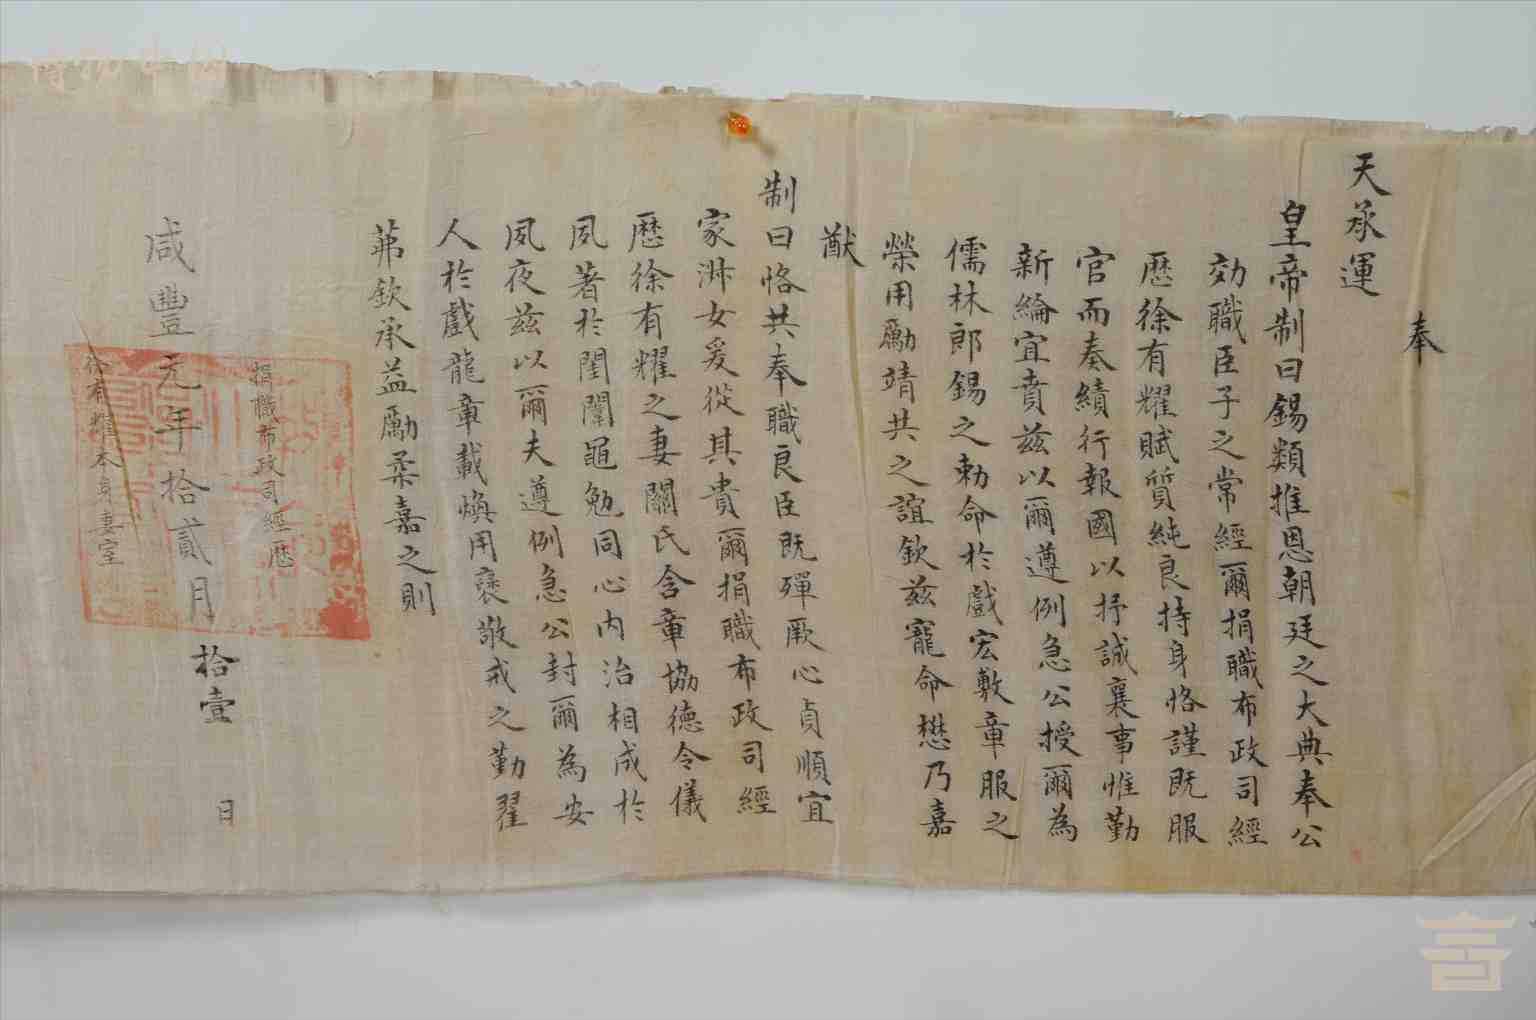 奉
天承運
皇帝制曰錫類推恩朝廷之大典奉公
効職臣子之常經爾捐職布政司經
歷徐有耀賦質純良持身恪謹既服
官而奏績行報國以抒誠襄事惟勤
新綸宜賁茲以爾遵例急公授爾為
儒林郎錫之勅命於戲宏敷章服之
榮用勵靖共之誼欽茲寵命懋乃嘉
猷
制曰恪共奉職良臣既殫厥心貞順宜
家淋女爰從其貴爾捐職布政司經
歷徐有耀之妻關氏含章協德令儀
夙著於閨闈黽勉同心內治相成於
夙夜茲以爾夫遵例急公封爾為安
人於戲龍章載煥用褒敬戒之勤翟
茀欽承益勵柔嘉之則
捐職布政司經歷
咸豐元年拾貳月拾壹日
徐有耀本身妻室